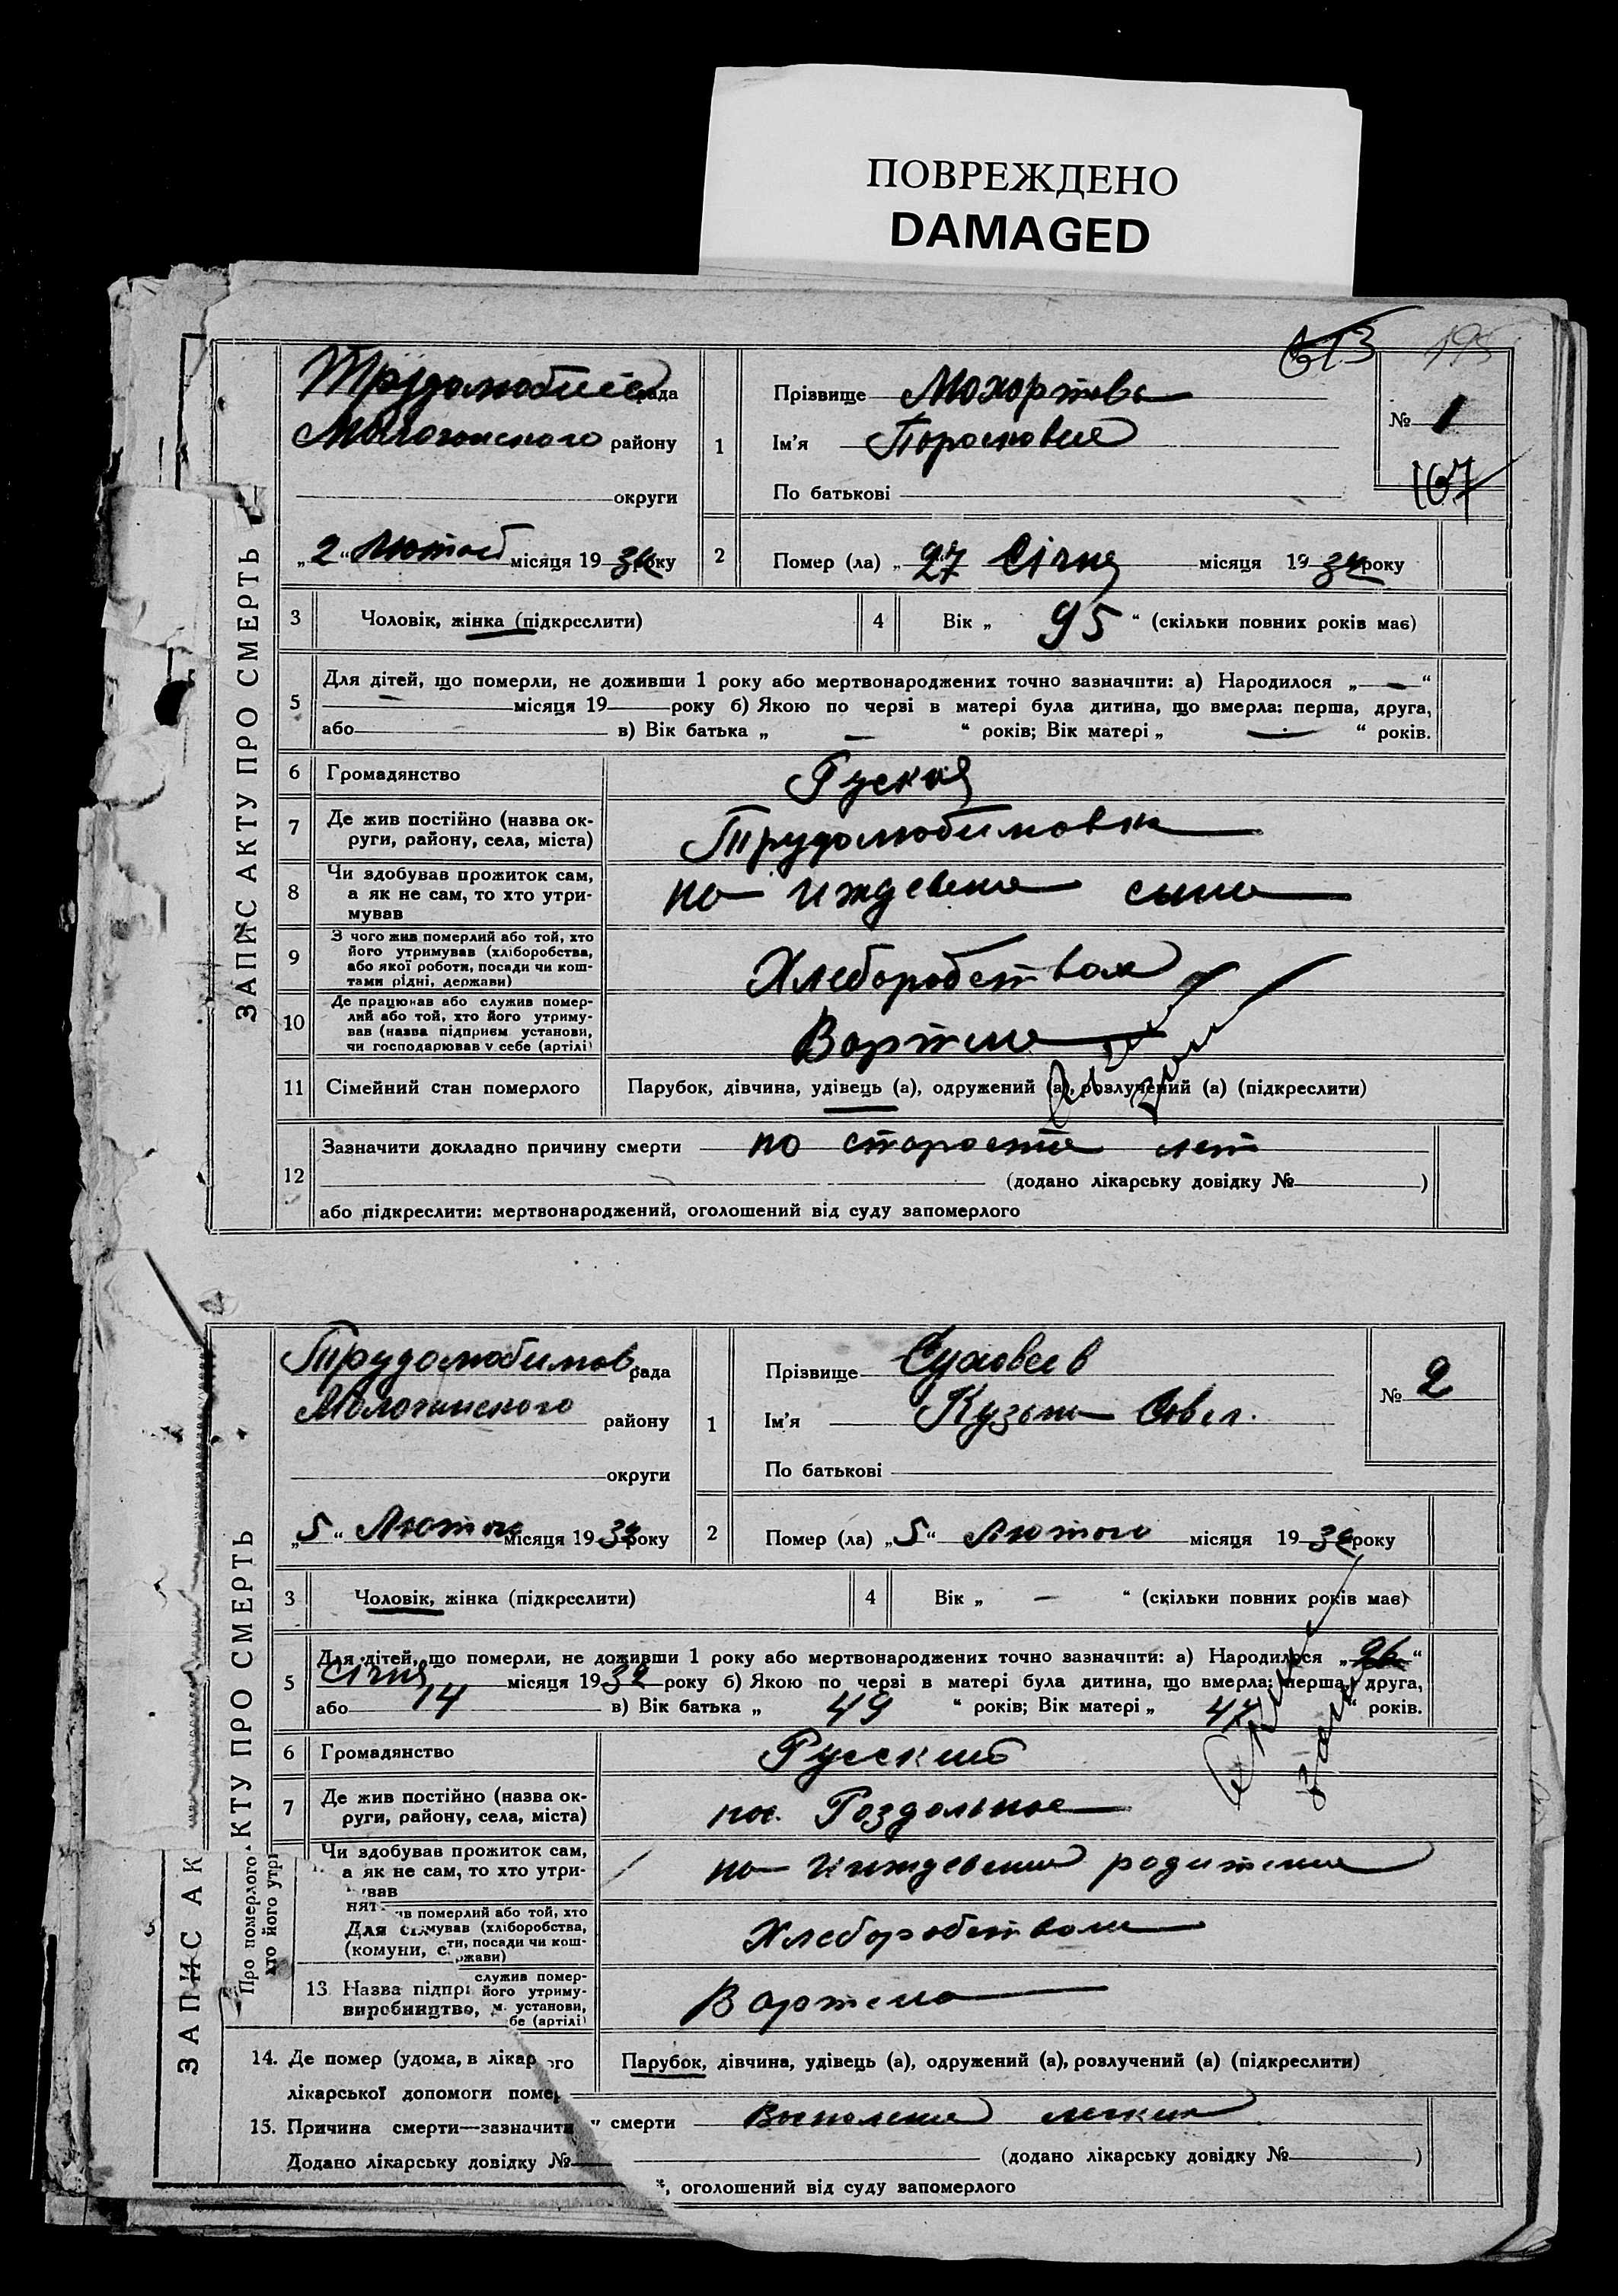 ПОВРЕЖДЕНО
DAMAGED
613 195
ЗАПИС АКТУ ПРО СМЕРТЬ
рада
району
округи
„2“ Лютого місяця 1932 року
1 Прізвище Мохортова
Ім'я Порасковия
По батькові
№ 1
167
2 Помер (ла) „27 Січня місяця 1932 року
3 Чоловік, жінка (підкреслити)
4 Вік „ 95 “ (скільки повних років має)
5 Для дітей, що померли, не доживши 1 року або мертвонароджених точно зазначити: а) Народилося „—“
— місяця 19 року б) Якою по черзі в матері була дитина, що вмерла: перша, друга,
або в) Вік батька „ — “ років; Вік матері „ — “ років.
6 Громадянство Руская
7 Де жив постійно (назва ок-
руги, району, села, міста) Трудолюбимовка
8 Чи здобував прожиток сам,
а як не сам, то хто утри-
мував на иждевении сына
9 З чого жив померлий або той, хто
його утримував (хліборобства,
або якої роботи, посади чи кош-
тами рідні, держави) Хлеборобством
10 Де працював або служив помер-
лий або той, хто його утриму-
вав (назва підприєм установи,
чи господарював у себе (артілі) Вартеле
11 Сімейний стан померлого Парубок, дівчина, удівець (а), одружений (а), розлучений (а) (підкреслити)
12 Зазначити докладно причину смерти по старости лет
(додано лікарську довідку № )
або підкреслити: мертвонароджений, оголошений від суду запомерлого
АКТУ ПРО СМЕРТЬ
Трудолюбимов рада
району
округи
„5“ Лютого місяця 1932 року
1 Прізвище Суховеев
Ім'я Кузьма
По батькові
№ 2
2 Помер (ла) „5“ Лютого місяця 1932 року
3 Чоловік, жінка (підкреслити)
4 Вік „ — “ (скільки повних років має)
5 Для дітей, що померли, не доживши 1 року або мертвонароджених точно зазначити: а) Народилося „26“
Січня місяця 1932 року б) Якою по черзі в матері була дитина, що вмерла: перша, друга,
або 14 в) Вік батька „ 49 “ років; Вік матері „ 47 “ років.
6 Громадянство Русский
7 Де жив постійно (назва ок-
руги, району, села, міста) пос. Роздольное
Чи здобував прожиток сам,
а як не сам, то хто утри-
ував на иждевении родителей
нят
ив померлий або той, хто
Для мував (хліборобства,
(комуни, с ти, посади чи кош-
ржави) Хлеборобством
служив помер-
13. Назва підпри його утриму-
виробництво, м. установи,
бе (артілі) Вартела
Про померлого
хто його утри
ЗАПИС АК
14. Де помер (удома, в лікар ого Парубок, дівчина, удівець (а), одружений (а), розлучений (а) (підкреслити)
лікарської допомоги помер
15. Причина смерти—зазначити смерти Воспаление легких
Додано лікарську довідку № (додано лікарську довідку № )
й, оголошений від суду запомерлого